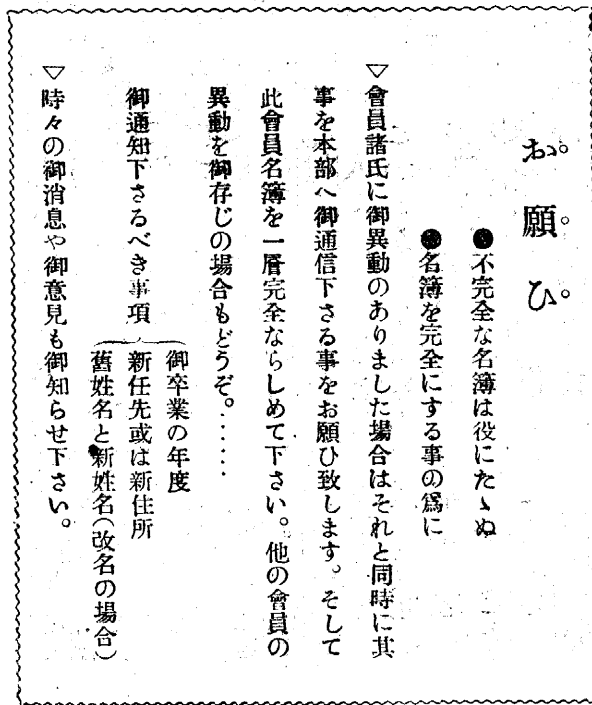 お願ひ
●不完全な名簿は役にたゝぬ
●名簿を完全にする事の爲に
▽會員諸氏に御異動のありました場合はそれと同時に其
事を本部へ御通信下さる事をお願ひ致します。そして
此會員名簿を一層完全ならしめて下さい。他の會員の
異動を御存じの場合もどうぞ。‥‥‥
御通知下さるべき事項
御卒業の年度
新任先或は新住所
舊姓名と新姓名(改名の場合)
▽時々の御消息や御意見も御知らせ下さい。